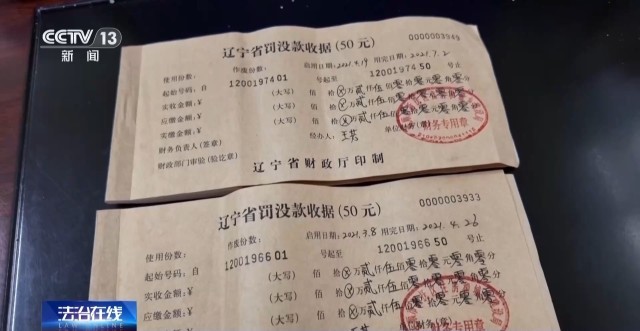 CCTV 13
新闻
辽宁省罚没款收据(50元)
0000003949
使用份数:
作废份数:
启用日期:2021.4.19 用完日期:2021.7.2
起始号码:自 1200197401 号起至 1200197450 号止
实收金额:¥ (大写) 佰 拾 ⊗万贰仟伍佰零拾零元零角零分
应缴金额:¥ (大写) 佰 拾 ⊗万贰仟伍佰零拾零元零角零分
实缴金额:¥ (大写) 佰 拾 ⊗万贰仟伍佰零拾零元零角零分
财务负责人(签章) 经办人: 单位财务(章)
财务专用章
财政部门审验(验讫章)
辽宁省财政厅印制
辽宁省罚没款收据(50元)
0000003933
使用份数:
作废份数:
启用日期:2021.3.8 用完日期:2021.4.26
起始号码:自 1200196601 号起至 1200196650 号止
实收金额:¥ (大写) 佰 拾 ⊗万贰仟伍佰零拾零元零角零分
应缴金额:¥ (大写) 佰 拾 ⊗万贰仟伍佰零拾零元零角零分
法治在线